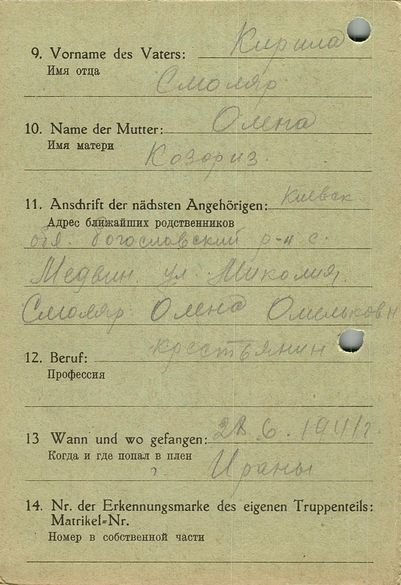 9. Vorname des Vaters: Кирила
Имя отца
Смоляр
10. Name der Mutter: Олена
Имя матери
Козориз.
11. Anschrift der nächsten Angehörigen: Киевск
Адрес ближайших родственников
обл. Богославский р-н с.
Медвин ул. Миколия
Смоляр Олена Омельковн
12. Beruf: крестьянин
Профессия
13 Wann und wo gefangen: 28.6.1941г.
Когда и где попал в плен
? Ираны
14. Nr. der Erkennungsmarke des eigenen Truppenteils:
Matrikel-Nr.
Номер в собственной части